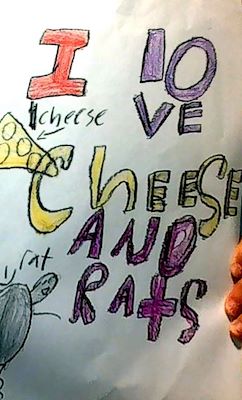 I lO
VE
1 cheese
CHEESE
AND
1 rat
RAtS